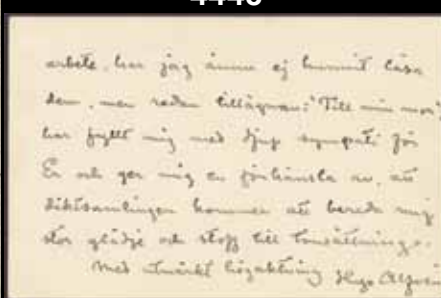 arbete, har jag ännu ej hunnit läsa
dem, men redan tillägnan: "Till min mor",
har fyllt mig med djup sympati för
Er och ger mig en förkänsla av, att
diktsamlingen kommer att bereda mig
stor glädje och stoff till tonsättningar.
Med utmärkt högaktning Hugo Alfvén